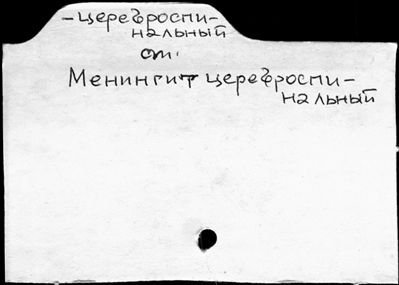 -цереброспи-
нальный
см.
Менингит цереброспи-
нальный